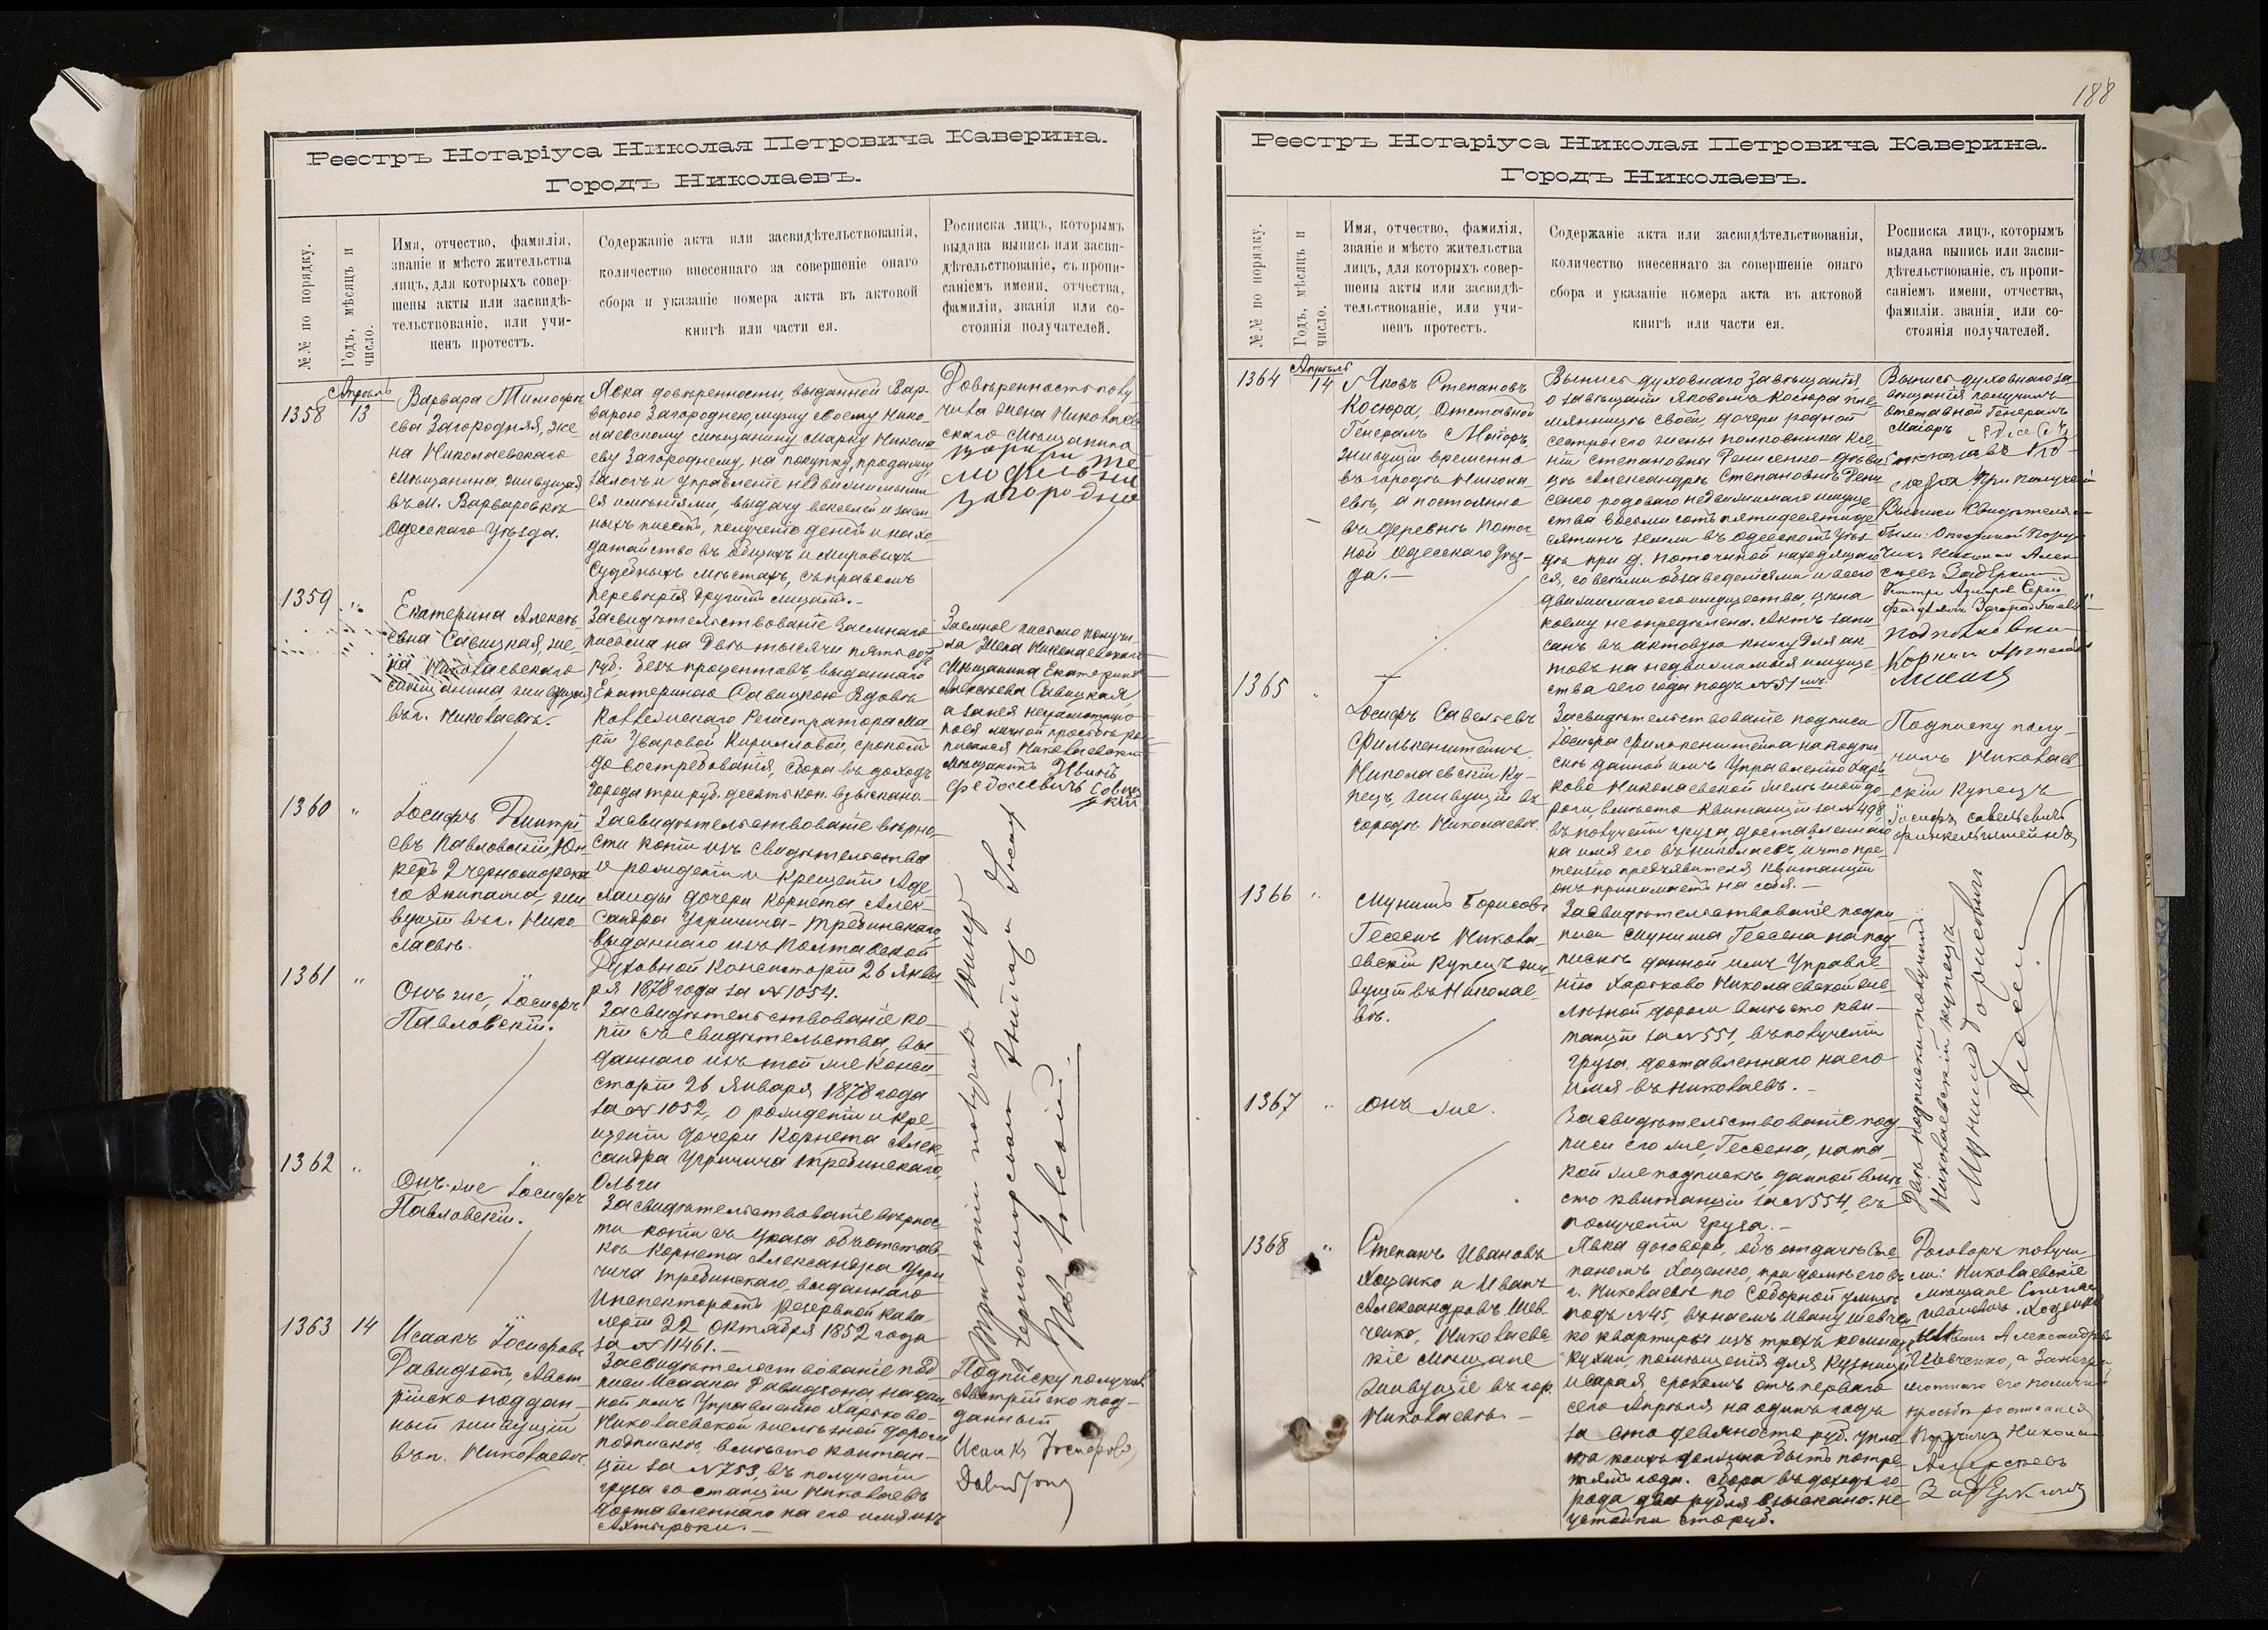 Реестръ Нотаріуса Николая Петровича Каверина.
Городъ Николаевъ.
№.№ по порядку.
Годъ, мѣсяцъ и
число.
Имя, отчество, фамилія,
званіе и мѣсто жительства
лицъ, для которыхъ совер-
шены акты или засвидѣ-
тельствованіе, или учи-
ненъ протестъ.
Содержаніе акта или засвидѣтельствованія,
количество внесеннаго за совершеніе онаго
сбора и указаніе номера акта въ актовой
книгѣ или части ея.
Росписка лицъ, которымъ
выдана выпись или засви-
дѣтельствованіе, съ пропи-
саніемъ имени, отчества,
фамиліи, званія или со-
стоянія получателей.
1358
Апрѣль
13
Варвара Тимофе
ева Загородняя, же-
на Николаевскаго
мѣщанина живущая
въ м. Варваровкѣ
Одесскаго Уѣзда.
Явка довѣренности, выданной Вар-
варою Загороднею, мужу своему Нико-
лаевскому мѣщанину Марку Никола
еву Загороднему, на покупку, продажу
залогъ и управленіе недвижимыми
ея имѣніями, выдачу векселей и заем
ныхъ писемъ, полученіе денегъ и на хо-
датайство въ общихъ и мировыхъ
Судебныхъ мѣстахъ, съ правомъ
перевѣрія другимъ лицамъ.-
Довѣренность полу-
чила жена Николаев
скаго мѣщанина
1359
"
Екатерина Алексѣ-
евна Савицкая, же-
на Николаевскаго
мѣщанина живущая
въ г. Николаевѣ.
Засвидѣтельствованіе Заемнаго
письма на Двѣ тысячи пятьсотъ
руб. безъ процентовъ, выданнаго
Екатериною Савицкою Вдовѣ
Коллежскаго Регистратора Ма-
ріи Уваровой Кирилловой, срокомъ
до востребованія, сбора въ доходъ
города три руб. десять коп. взыскано.-
Заемное письмо получи-
ла Жена Николаевскаго
Мѣщанина Екатерина
Алексѣева Савицкая,
а за нея неграмотную
по ея личной просьбѣ рос
писался Николаевскій
мѣщанинъ Иванъ
Федосеевичъ Савиц
кій
1360
"
Іосифъ Дмитрі
евъ Павловскій, Юн-
керъ 2 черноморска
го Экипажа, жи
вущій въ г. Нико
лаевѣ.
Засвидѣтельствованіе вѣрно-
сти копіи изъ Свидѣтельства
о рожденіи и крещеніи Аде
лаиды дочери Корнета Алек-
сандра Угричича-Требинскаго,
выданнаго изъ Полтавской
Духовной Консисторіи 26 Янва
ря 1878 года за № 1054.
1361
"
Онъ же, Іосифъ
Павловскій.
Засвидѣтельствованіе ко-
піи съ Свидѣтельства, вы
даннаго изъ той же Конси
сторіи 26 Января 1878 года
за № 1052, о рожденіи и кре-
щеніи дочери Корнета Алек
сандра Угричича Требинскаго,
Ольги
1362
"
Онъ-же Іосифъ
Павловскій.
Засвидѣтельствованіе вѣрнос-
ти копіи съ Указа объ отстав-
кѣ Корнета Александра Угри
чича Требинскаго, выданнаго
Инспекторомъ резервной Кава
леріи 22 Октября 1852 года
за № 11461.-
Три копіи получилъ Юнкеръ
Черноморскаго Экипажа Іосифъ
Павловскій.
1363
14
Исаакъ Іосифовъ
Давидзонъ, Авст-
рійско поддан-
ный живущій
въ г. Николаевѣ.
Засвидѣтельствованіе под
писи Исаака Давидзона на дан
ной имъ Управленію Харьково-
Николаевской желѣзной дороги
подпискѣ, вмѣсто квитан-
ціи за № 753, въ полученіи
груза со станціи Николаевъ
доставленнаго на его имя изъ
Ахтырки.-
Подписку получилъ
Австрійско под-
данный
Исаакъ Іосифовъ
188
Реестръ Нотаріуса Николая Петровича Каверина.
Городъ Николаевъ.
№.№ по порядку.
Годъ, мѣсяцъ и
число.
Имя, отчество, фамилія,
званіе и мѣсто жительства
лицъ, для которыхъ совер-
шены акты или засвидѣ-
тельствованіе, или учи-
ненъ протестъ.
Содержаніе акта или засвидѣтельствованія,
количество внесеннаго за совершеніе онаго
сбора и указаніе номера акта въ актовой
книгѣ или части ея.
Росписка лицъ, которымъ
выдана выпись или засви-
дѣтельствованіе, съ пропи-
саніемъ имени, отчества,
фамиліи, званія или со-
стоянія получателей.
1364
Апрѣль
14
Яковъ Степановъ
Косюра, Отставной
Генералъ Маіоръ,
живущій временно
въ городѣ Никола
евѣ, а постоянно
въ деревнѣ Поточ-
ной Одесскаго Уѣз-
да.-
Выпись духовнаго завѣщанія,
о завѣщаніи Яковомъ Косюра пле-
мянницѣ своей, дочери родной
сестры его жены полковника Ксе-
ніи Степановны Ренисенко-дѣви
цѣ Александрѣ Степановнѣ Рени
сенко родоваго недвижимаго имуще-
ства восьми сотъ пятидесяти де
сятинъ земли въ Одесскомъ Уѣз
дѣ при д. Поточиной находящей
ся, со всѣми обзаведеніями и всего
движимаго его имущества, цѣна
коему не опредѣлена. Актъ запи
санъ въ актовую книгу для ак-
товъ на недвижимыя имуще-
ства сего года подъ № 51мъ.
Выпись духовнаго за
вѣщанія получилъ
Отставной Генералъ
Маіоръ
При получен
Выписи Свидѣтелями
были: Отставной Пору
чикъ Николай Алек
1365
"
Іосифъ Савельевъ
Филькенштейнъ,
Николаевскій Ку-
пецъ, живущій въ
городѣ Николаевѣ.
Засвидѣтельствованіе подписи
Іосифа Филькенштейна на подпи
скѣ данной имъ Управленію Харь
ково Николаевской желѣзной до-
роги, вмѣсто квитанціи за № 498,
въ полученіи груза, доставленнаго
на имя его въ Николаевъ, и что пре-
тензію предъявителя квитанціи
онъ принимаетъ на себя.-
Подписку полу-
чилъ Николаев-
скій Купецъ
Іосифъ Савельевичъ
Финкельштейнъ
1366
"
Мунишъ Борисовъ
Гессенъ Никола-
евскій купецъ жи
вущій въ Николае-
вѣ.
Засвидѣтельствованіе подпи
писи Муниша Гессена на под
пискѣ данной имъ Управле-
нію Харьково Николаевской же-
лѣзной дороги вмѣсто кви-
танціи за № 551, въ полученіи
груза, доставленнаго на его
имя въ Николаевъ.-
1367
"
Онъ же.
Засвидѣтельствованіе под
писи его же, Гессена, на та-
кой же подпискѣ, данной вмѣ
сто квитанціи за № 554, въ
полученіи груза.-
Двѣ подписки получилъ
Николаевскій купецъ
Мунишъ Борисовичъ
Гессен
1368
"
Степанъ Ивановъ
Хоценко и Иванъ
Александровъ Шев
ченко, Николаевс-
кіе мѣщане
живущіе въ гор.
Николаевѣ.-
Явка договора, объ отдачѣ Сте-
паномъ Хоценко, при домѣ его въ
г. Николаевѣ по Соборной улицѣ
подъ № 45, въ наемъ Ивану Шевчен
ко квартиры изъ трехъ комнатъ
кухни, помѣщенія для кузницы
и сарая, срокомъ отъ перваго
сего Апрѣля на одинъ годъ
за сто девяносто руб. упла-
та коихъ должна быть по тре-
тямъ года. сбора въ доходъ го-
рода два рубля взыскано. не
устойки сто руб.
Договоръ получи-
ли: Николаевскіе
мѣщане Степанъ
Ивановъ Хоценко
Иванъ Александровъ
Шевченко, а за негра
мотнаго его по личной
просьбѣ росписался
Поручикъ Николай
Алексѣевъ